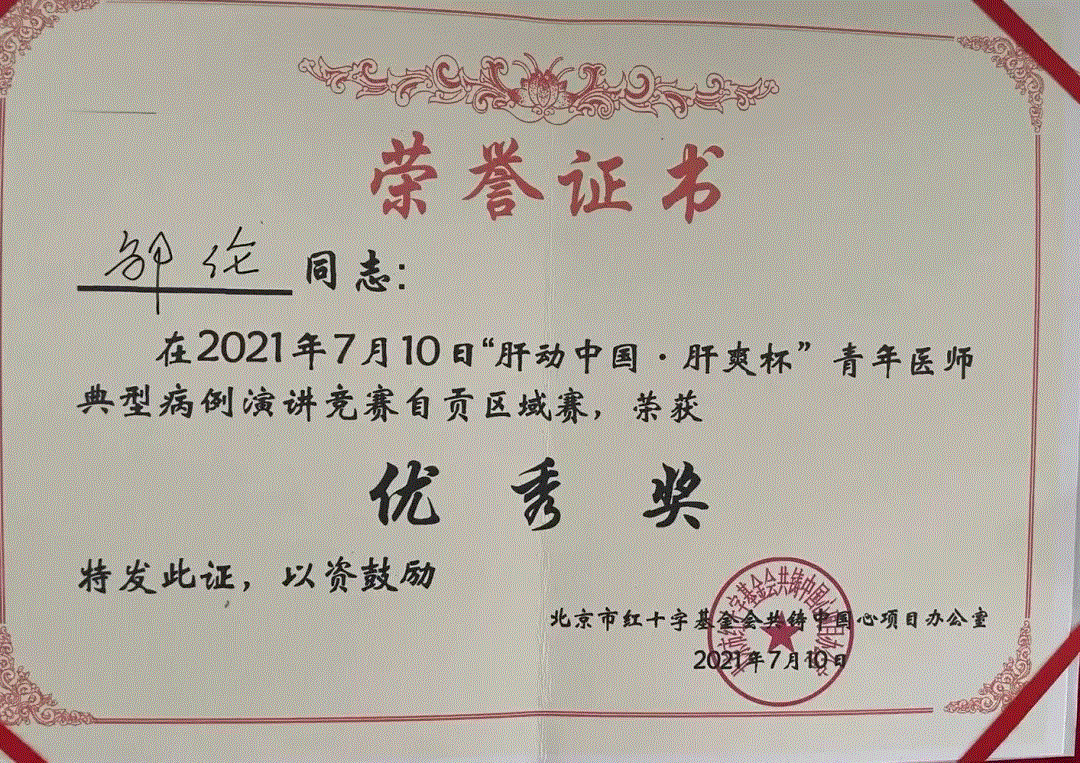 荣誉证书
邹伦 同志：
在2021年7月10日“肝动中国·肝爽杯”青年医师
典型病例演讲竞赛自贡区域赛，荣获
优秀奖
特发此证，以资鼓励
北京市红十字基金会共铸中国心项目办公室
2021年7月10日
北京市红十字基金会共铸中国心项目办公室